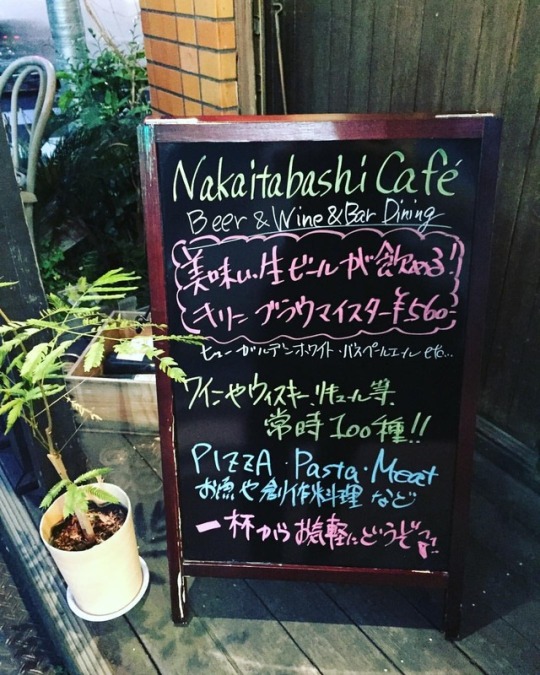 Nakaitabashi Café
Beer & Wine & Bar Dining
美味い生ビールが飲める!
キリン ブラウマイスター ¥560-
ヒューガルデンホワイト・バスペールエール etc...
ワインやウィスキー、リキュール等
常時100種!!
PIZZA・Pasta・Meat
お魚や創作料理 など
一杯からお気軽にどうぞ♪!!